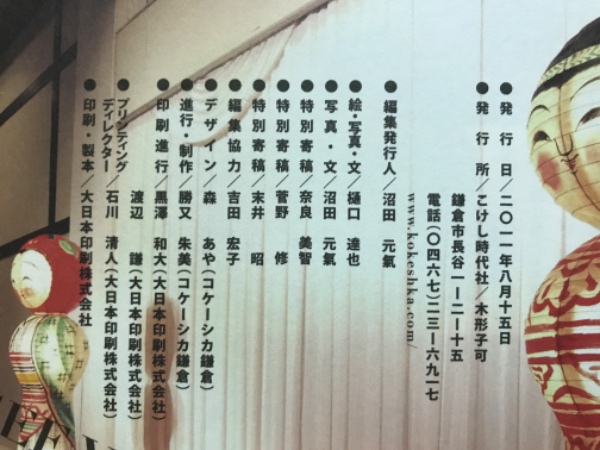 ●発行日／二〇一一年八月十五日
●発行所／こけし時代社／木形子可
鎌倉市長谷一ー二ー十五
電話(〇四六七)二三ー六九一七
www.kokeshka.com/
●編集発行人／沼田 元氣
●絵・写真・文／樋口 達也
●写真・文／沼田 元氣
●特別寄稿／奈良 美智
●特別寄稿／菅野 修
●特別寄稿／末井 昭
●編集協力／吉田 宏子
●デザイン／森 あや(コケーシカ鎌倉)
●進行・制作／勝又 朱美(コケーシカ鎌倉)
●印刷進行／黒澤 和大(大日本印刷株式会社)
渡辺 謙(大日本印刷株式会社)
●プリンティング
ディレクター／石川 清人(大日本印刷株式会社)
●印刷・製本／大日本印刷株式会社